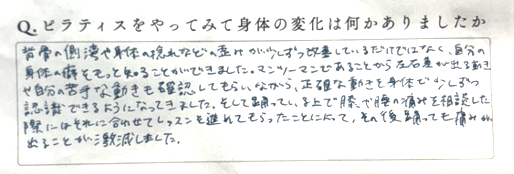 Q. ピラティスをやってみて身体の変化は何かありましたか
背骨の側湾や身体の捻れなどの歪みが少しずつ改善しているだけではなく、自分の
身体の癖をもっと知ることができました。マンツーマンであることから左右差が出る動き
や自分の苦手な動きも確認してもらいながら、正確な動きを身体で少しずつ
認識できるようになってきました。そして踊っている上で膝や腰の痛みを相談した
際にはそれに合わせてレッスンを進めてもらったことによって、その後踊っても痛みが
出ることが激減しました。